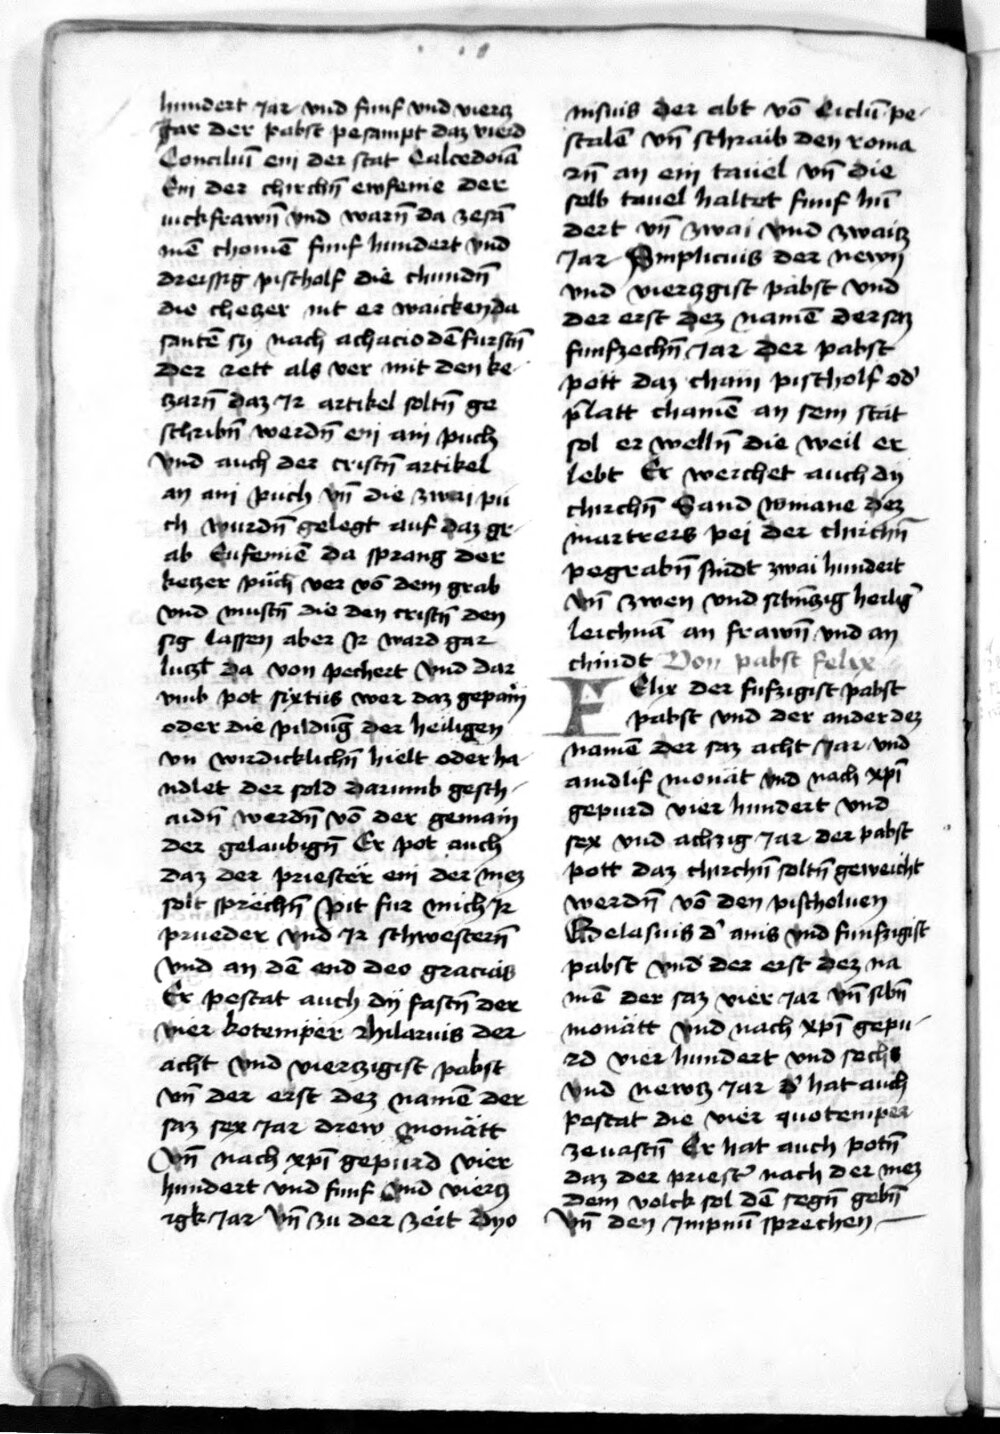 hundert Jar vnd funf vnd vierczg
Jar der pabst pesampt daz vierd
Conciliū em der stat Calcedoiā
Em der chirchn̄ ewfenie der
iuckfrawn̄ vnd warn̄ da zesā
mē chomē funf hundert vnd
dreissig pischolf die chundn̄
die checzer nit er waicken da
santē sy nach achacio dē furstn̄
Der rett als ver mit den ke
czarn̄ daz Ir artikel soltn̄ ge
schribn̄ werdn̄ em ain puch
vnd auch der cristn̄ artikel
an ain puch vn̄ die zwai pu
ch wurdn̄ gelegt auf daz gr
ab Eufemiē da sprang der
keczer püch ver vō dem grab
vnd mustn̄ die den cristn̄ den
sig lassen aber Ir ward gar
luczl da von pechert vnd dar
vmb pot sixtus wer daz gepain
oder die pildūg der heiligen
vn wirdicklichn̄ hielt oder ha
ndlet der sold darumb gesch
aidn̄ werdn̄ vō der gemain
der gelaubign̄ Er pot auch
daz der priester em der mez
solt sprechn̄ pit fur mich Ir
prueder vnd Ir schwestern̄
vnd an dē end deo gracias
Er pestat auch dy fastn̄ der
vier kotemper Hilarius der
acht vnd vierczigist pabst
vn̄ der erst dez namē der
saz sex Jar drew monätt
vn̄ nach xp̄i gepurd vier
hundert vnd funf vnd viercz
igk Jar vn̄ zu der zeit dyo
nisius der abt vō Ciclū pe
stalē vn̄ schraib den roma
rn̄ an ein tauel vn̄ die
selb tauel haltet funf hū
dert vn̄ zwai vnd zwaicz
Jar Simplicius der newn
vnd vierczgist pabst vnd
der erst dez namē der saz
funfzechn̄ Jar der pabst
pott daz chain pischolf od'
p̄latt chamē an sein stat
sol er welln̄ die weil er
lebt Er werchet auch dy
chirchn̄ Sand viuiane dez
martrers pei der chirchn̄
pegrabn̄ sindt zwai hundert
vn̄ zwen vnd sibnczig heilig'
leichnā an frawn̄ vnd an
chindt Von pabst felix
FElix der fufzigist pabst
pabst vnd der ander dez
namē der saz acht Jar vnd
aindlif monät vnd nach xp̄i
gepurd vier hundert vnd
sex vnd achzig Jar der pabst
pott daz chirchn̄ soltn̄ geweicht
werdn̄ vō den pischoluen
Gelasius d' ains vnd funfzigist
pabst vnd der erst dez na
mē der saz vier Jar vn̄ sibn̄
monätt vnd nach xp̄i gepu
rd vier hundert vnd sechs
vnd newcz Jar d' hat auch
pestat die vier quotemper
zevastn̄ Er hat auch potn̄
daz der priest' nach der mez
dem volck sol dē segn̄ gebn̄
vn̄ den Impnū sprechen